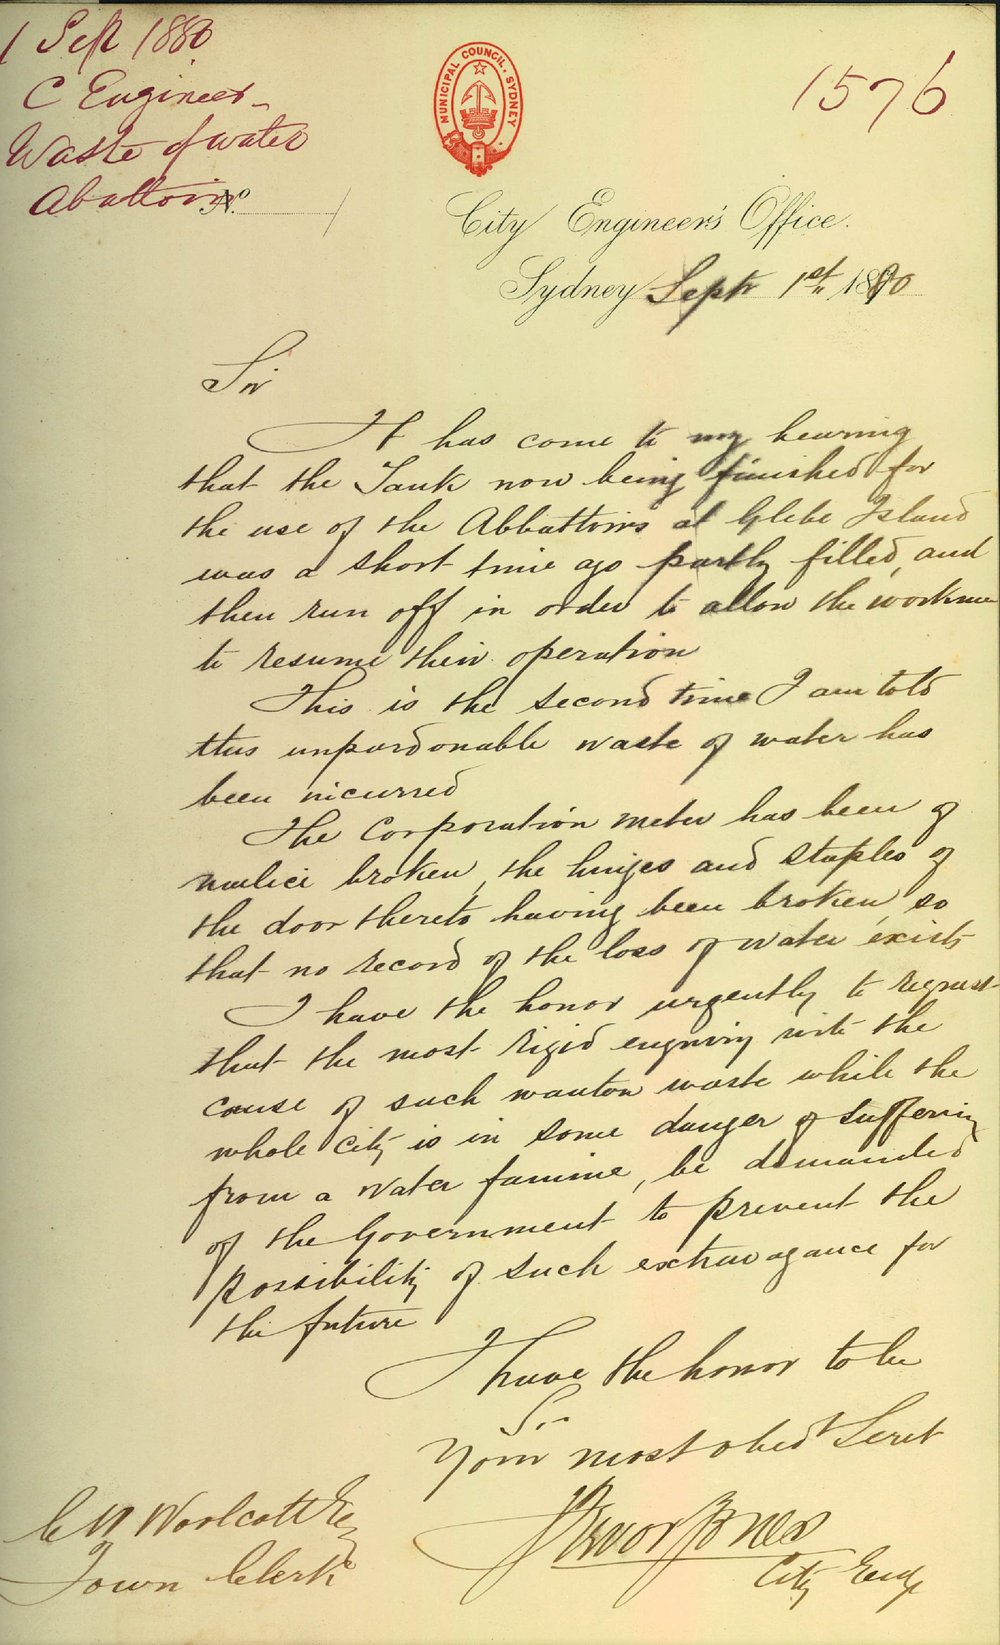 1 Sept 1880
C Engineer
Waste of water
Abattoirs
No.
MUNICIPAL COUNCIL, SYDNEY
1576
City Engineer's Office.
Sydney Septr 1st 1880
Sir
It has come to my hearing
that the Tank now being finished for
the use of the Abbattoirs at Glebe Island
was a short time ago partly filled, and
then run off in order to allow the workmen
to resume their operation
This is the second time I am told
this unpardonable waste of water has
been incurred
The Corporation meter has been of
malice broken, the hinges and staples of
the door thereto having been broken, so
that no record of the loss of water exists
I have the honor urgently to request
that the most rigid enquiry into the
cause of such wanton waste while the
whole city is in some danger of suffering
from a water famine, be demanded
of the Government to prevent the
possibility of such extravagance for
the future
I have the honor to be
Sir
Your most obedt Servt
Trevor Jones
City Engr
C H Woolcott Esq
Town Clerk